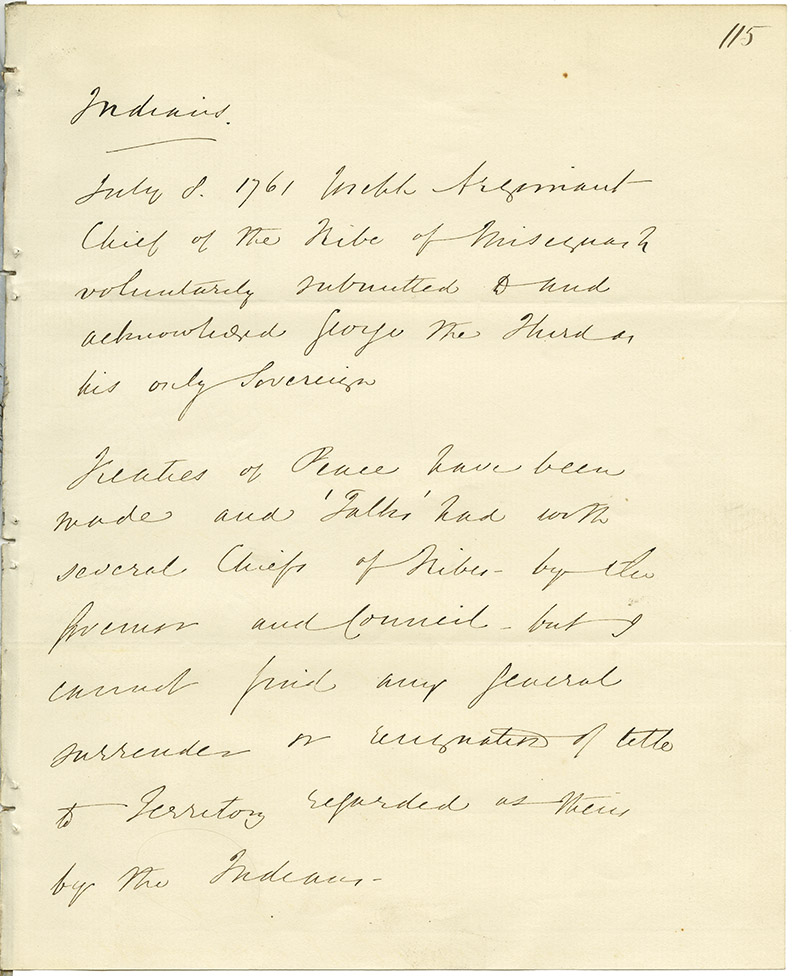 115
Indians.
July 8. 1761 Joseph Argimaut
Chief of the Tribe of Misiquash
voluntarily submitted to and
acknowledged George the Third as
his only Sovereign
Treaties of Peace have been
made and 'Talks' had with
several Chiefs of Tribes - by the
Governor and Council - but I
cannot find any general
surrender or resignation of title
to Territory regarded as theirs
by the Indians -